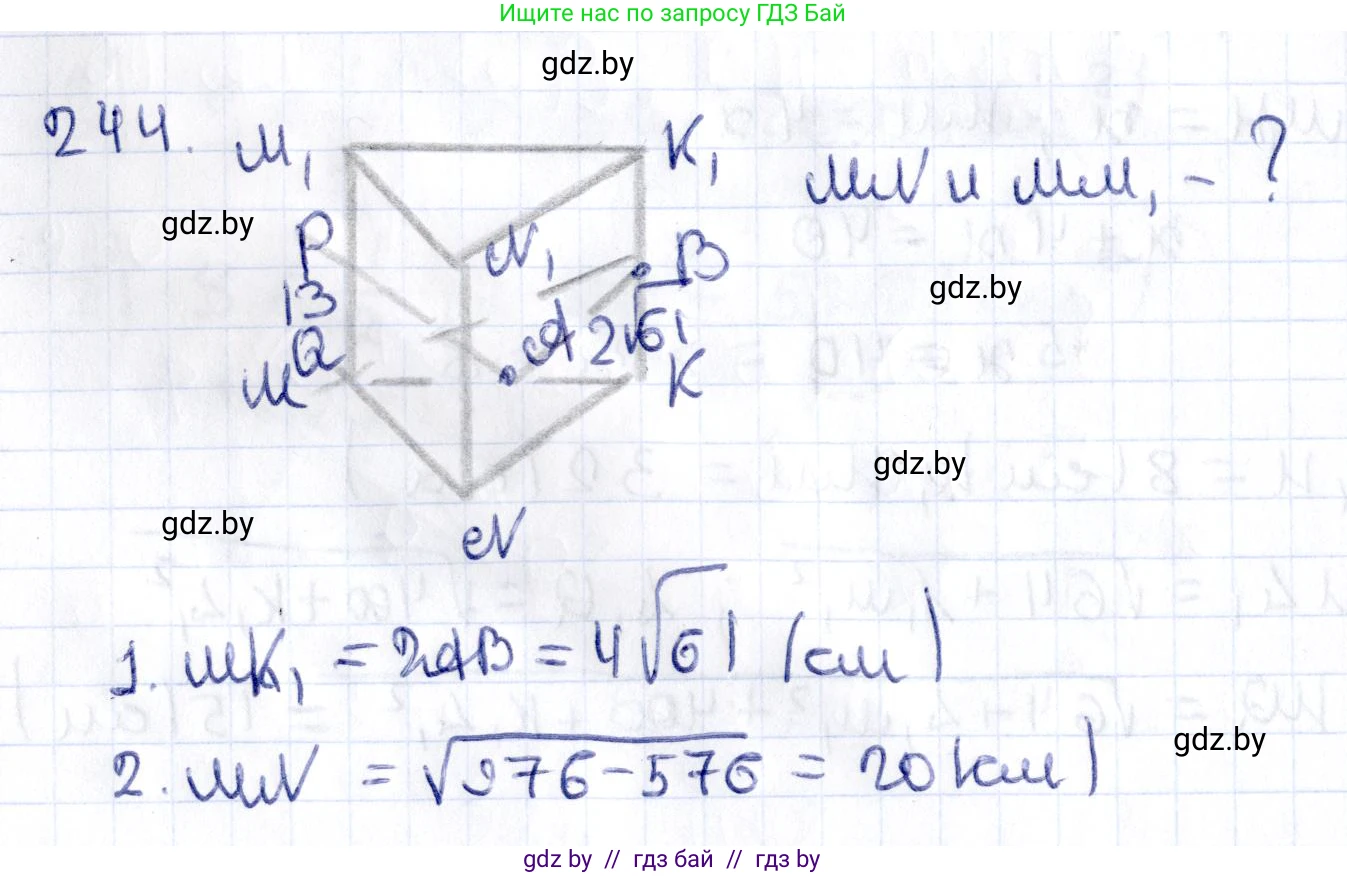 Ищите нас по запросу ГДЗ Бай
gdz.by
244.
M₁
K₁
MN и MM₁ - ?
gdz.by
P
N₁
B
13
gdz.by
Q
A
2√61
M
K
gdz.by
gdz.by
N
1. MK₁ = 2AB = 4√61 (см)
gdz.by
2. MN = √976-576 = 20 (см)
gdz.by // гдз бай // гдз by